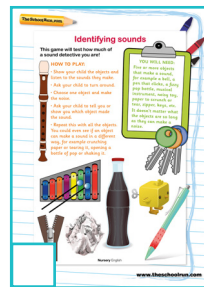 TheSchoolRun.com
Identifying sounds
This game will test how much of
a sound detective you are!
HOW TO PLAY:
- Show your child the objects and
listen to the sounds they make.
- Ask your child to turn around.
- Choose one object and make
the noise.
- Ask your child to tell you or
show you which object made
the sound.
- Repeat this with all the objects.
You could even see if an object
can make a sound in a different
way, for example crunching
paper or tearing it, opening a
bottle of pop or shaking it.
YOU WILL NEED:
Five or more objects
that make a sound,
for example a bell, a
pen that clicks, a fizzy
pop bottle, musical
instrument, noisy toy,
paper to scrunch or
tear, zipper, keys, etc.
It doesn't matter what
the objects are as long
as they can make a
noise.
Nursery English
www.theschoolrun.com